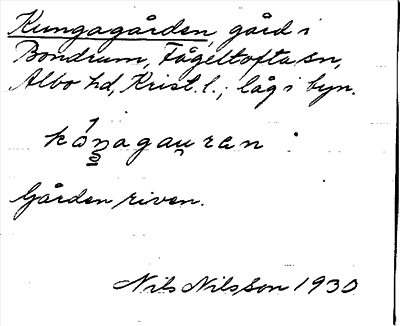 Kungagården, gård i
Bondrum, Fågeltofta sn,
Albo hd, Krist. l.; låg i byn.
kóŋagau̯ran
Gården riven.
Nils Nilsson 1930